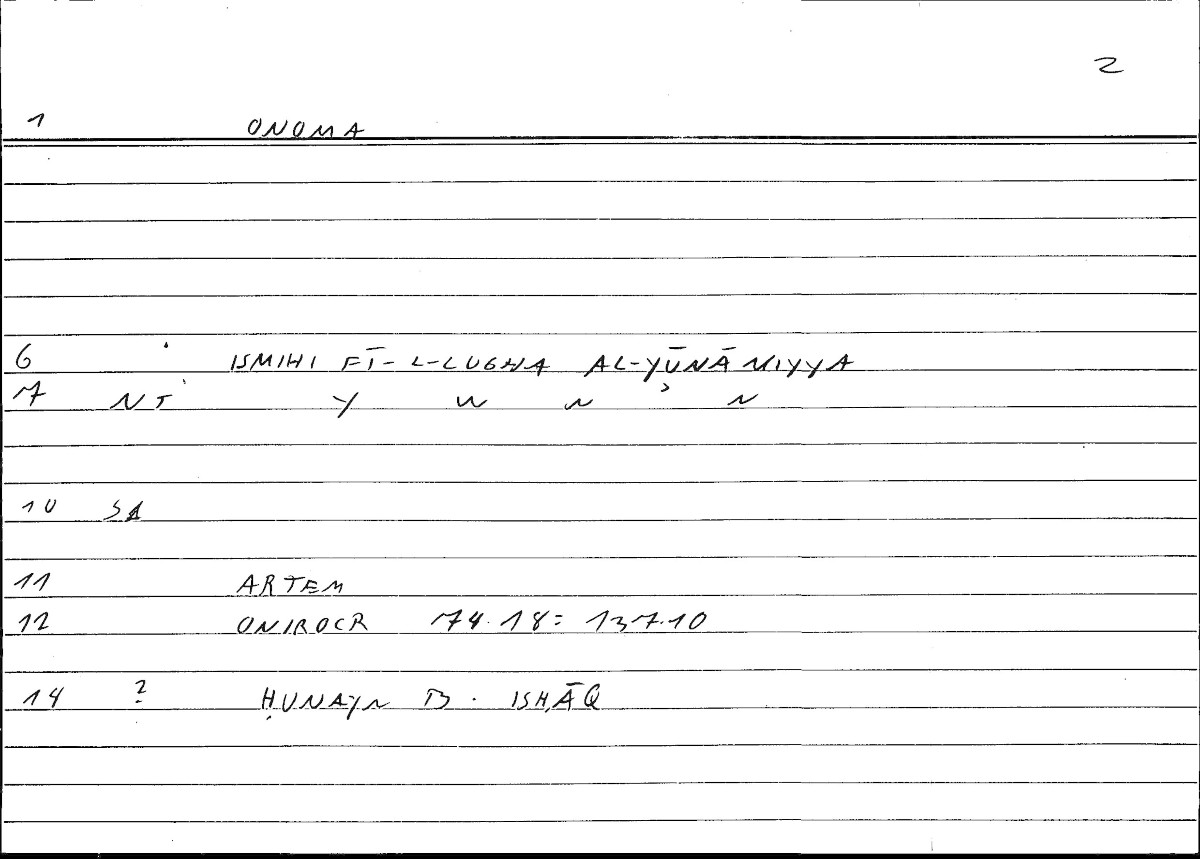 2
1 ONOMA
6 ISMIHI FĪ-L-LUGHA AL-YŪNĀNIYYA
7 NT Y W N ʾ N
10 SA
11 ARTEM
12 ONIROCR 74.18 = 137.10
14 ? ḤUNAYN B. ISḤĀQ